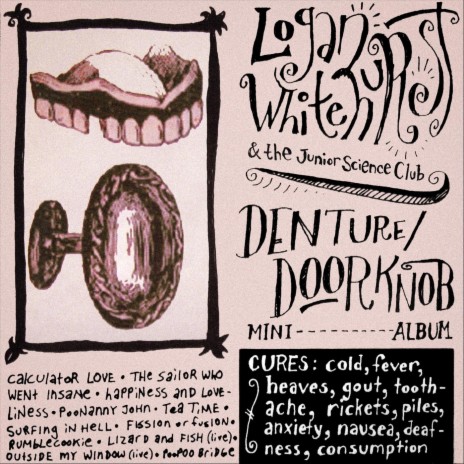 Logan
Whitehurst
& the Junior Science Club
DENTURE/
DOORKNOB
MINI----------ALBUM
CALCULATOR LOVE • THE SAILOR WHO
WENT INSANE • HAPPINESS AND LOVE-
LINESS • POONANNY JOHN • TEA TIME •
SURFING IN HELL • FISSION or FUSION •
RUMBLECOOKIE • LIZARD and FISH (live) •
OUTSIDE MY WINDOW (live) • POOPOO BRIDGE
CURES: cold, fever,
heaves, gout, tooth-
ache, rickets, piles,
anxiety, nausea, deaf-
ness, consumption